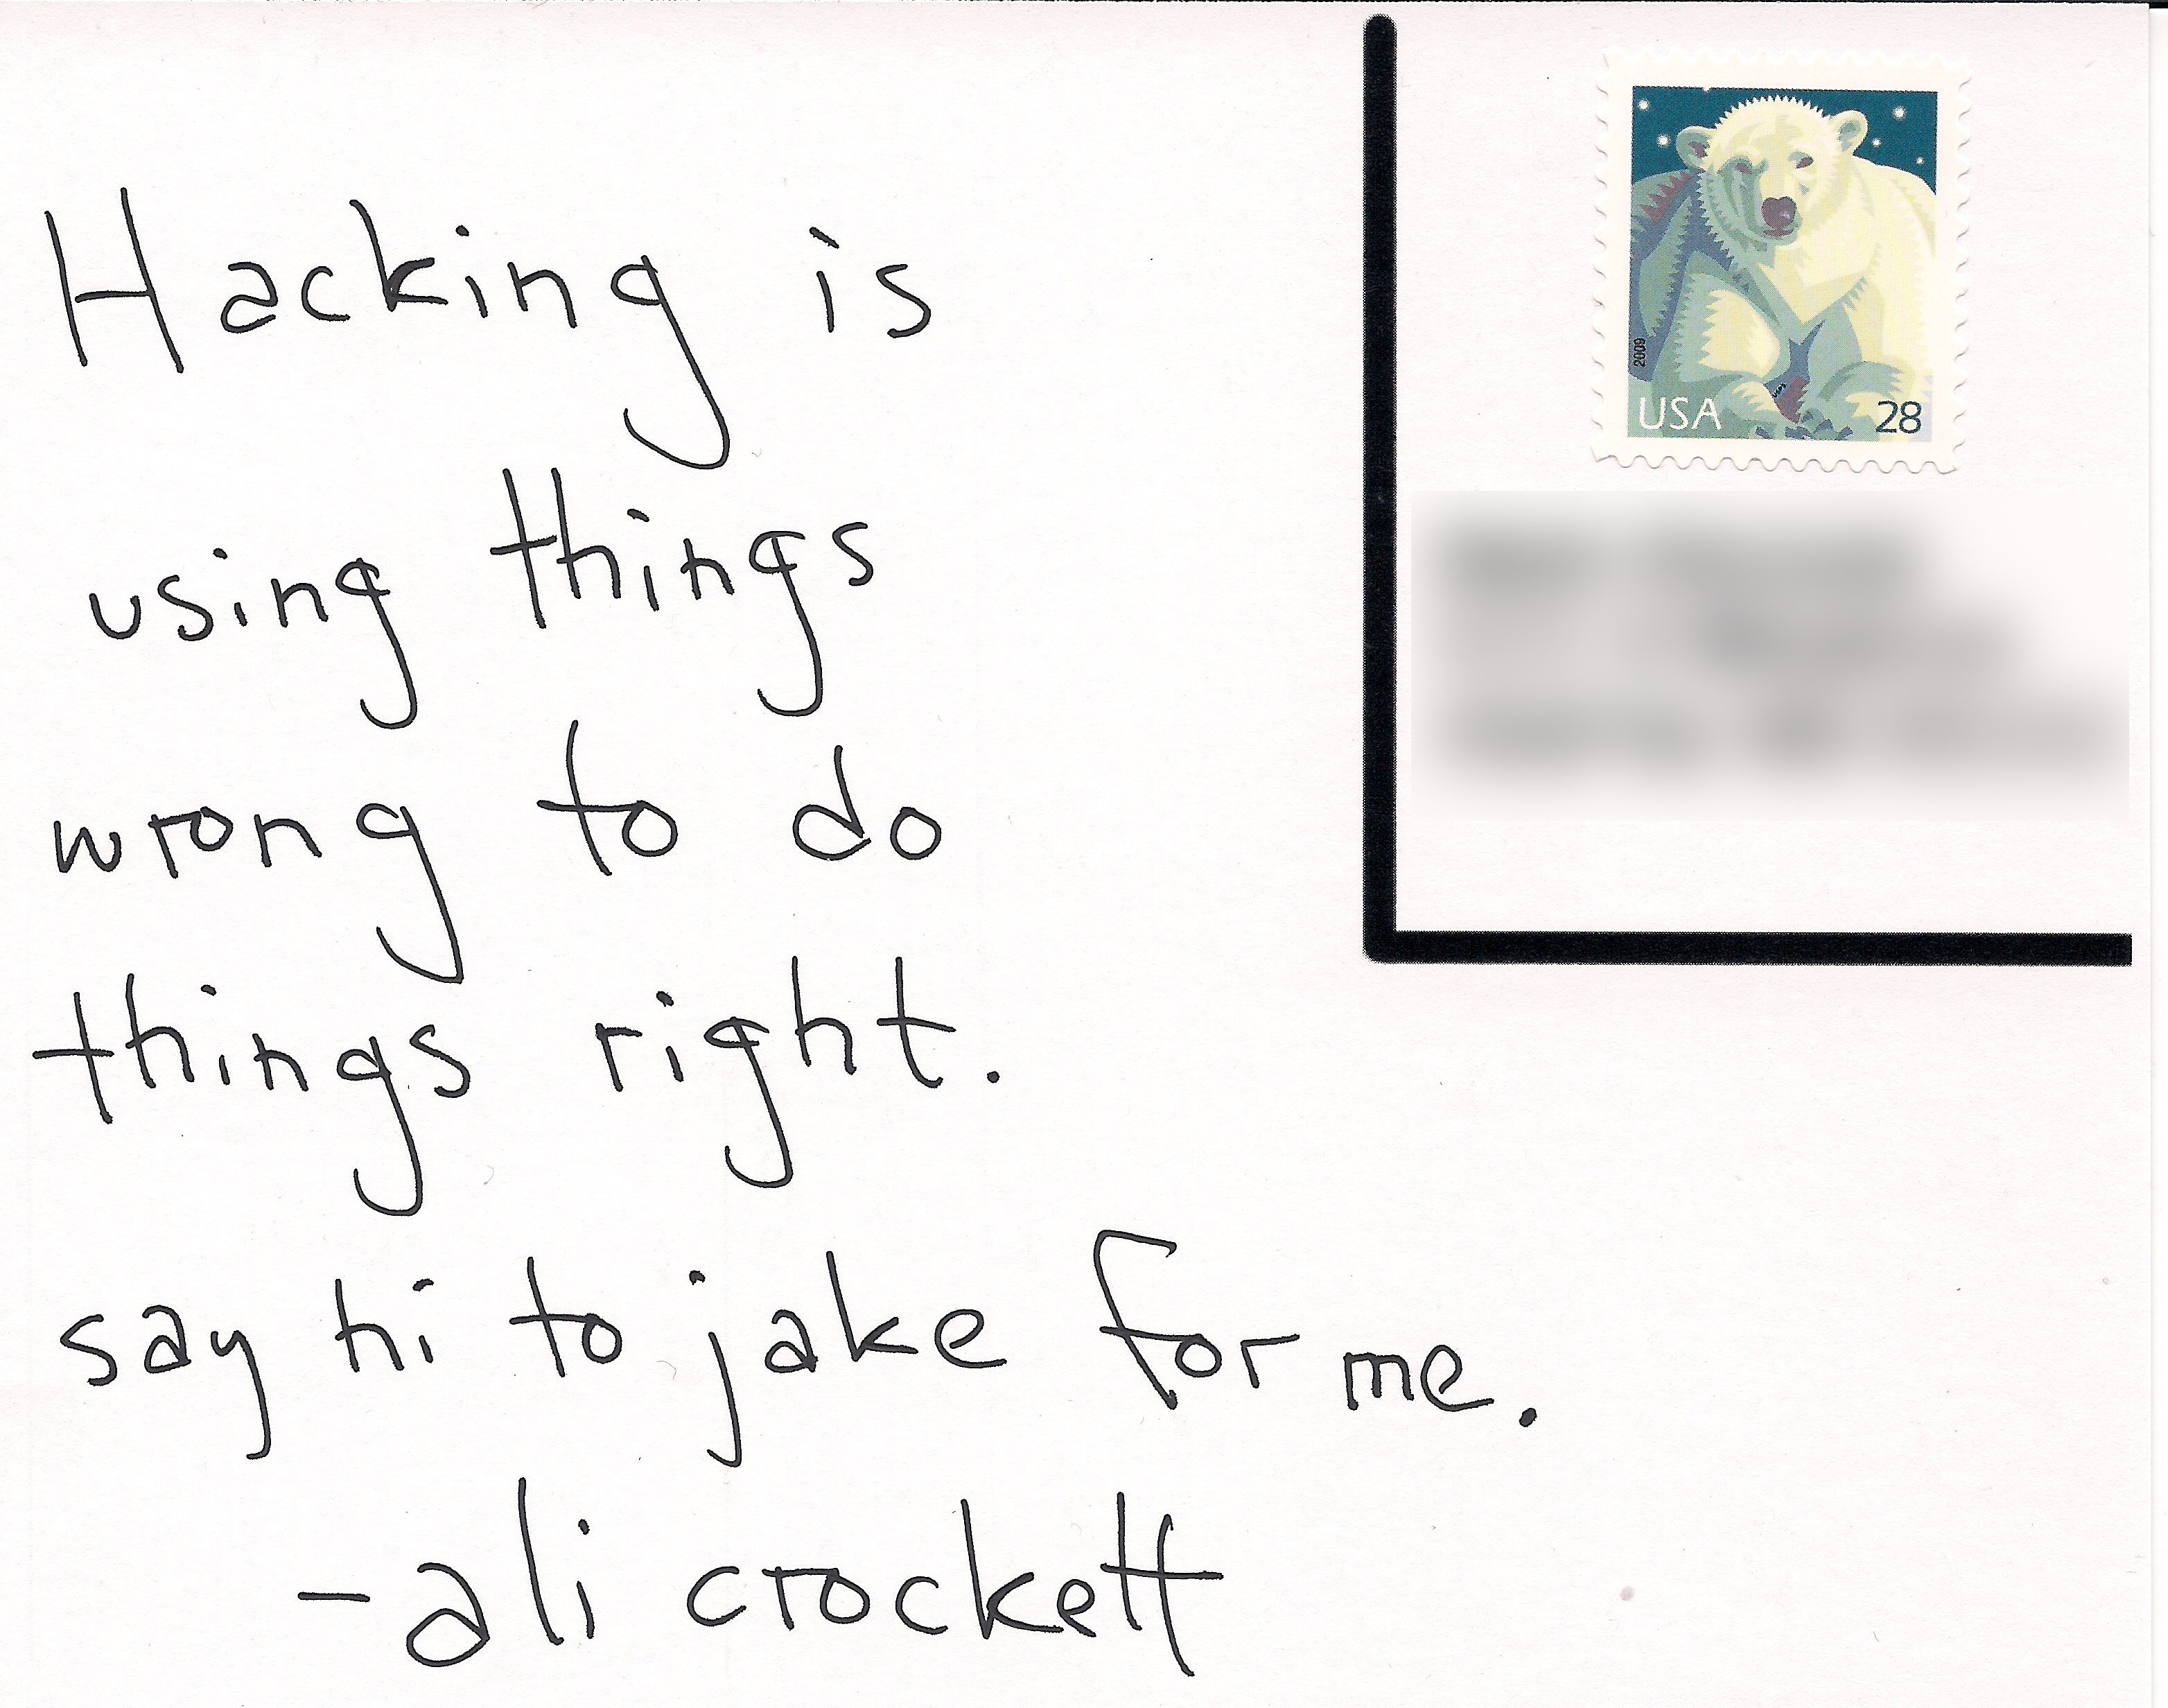 Hacking is
using things
wrong to do
things right.
say hi to jake for me.
-ali crockett
2009
USA 28